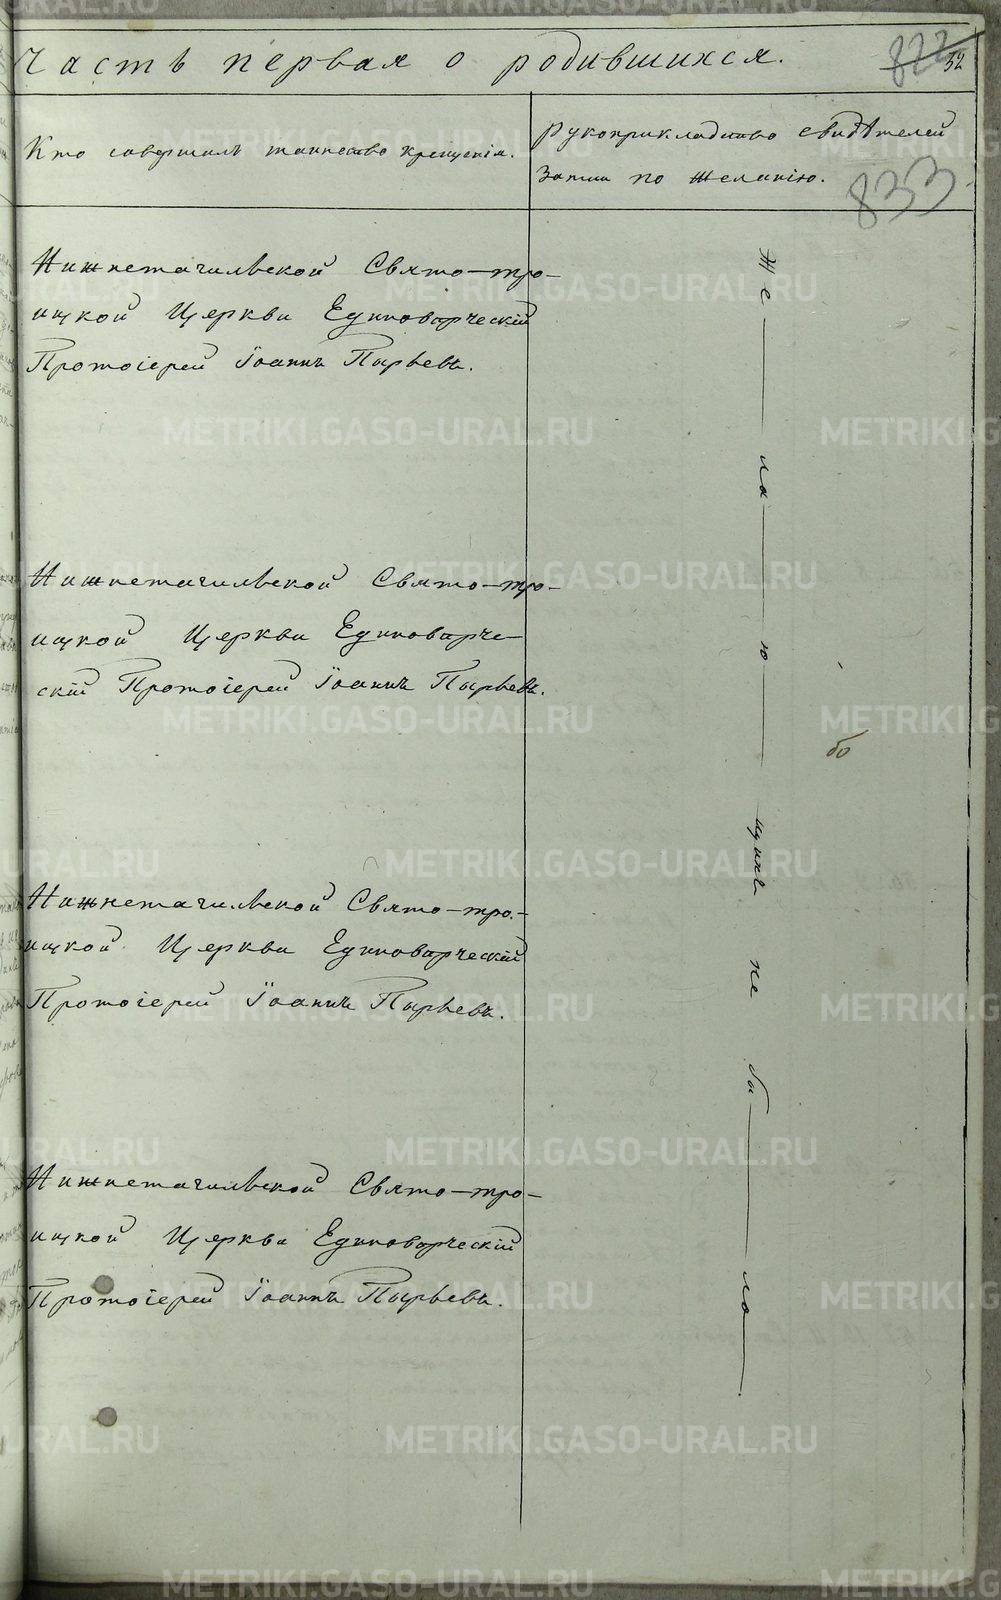 Часть первая о родившихся.
822 32
Кто совершилъ таинство крещенія.
Рукоприкладство свидѣтелей
записи по желанію.
833
Нижнетагильской Свято-тро-
ицкой Церкви Единовѣрческій
Протоіерей Іоаннъ Пырьевъ.
Нижнетагильской Свято-тро-
ицкой Церкви Единовѣрче-
скій Протоіерей Іоаннъ Пырьевъ.
Нижнетагильской Свято-тро-
ицкой Церкви Единовѣрческій
Протоіерей Іоаннъ Пырьевъ.
Нижнетагильской Свято-тро-
ицкой Церкви Единовѣрческій
Протоіерей Іоаннъ Пырьевъ.
Же—ла—ю—щихъ не бы—ло—.
METRIKI.GASO-URAL.RU